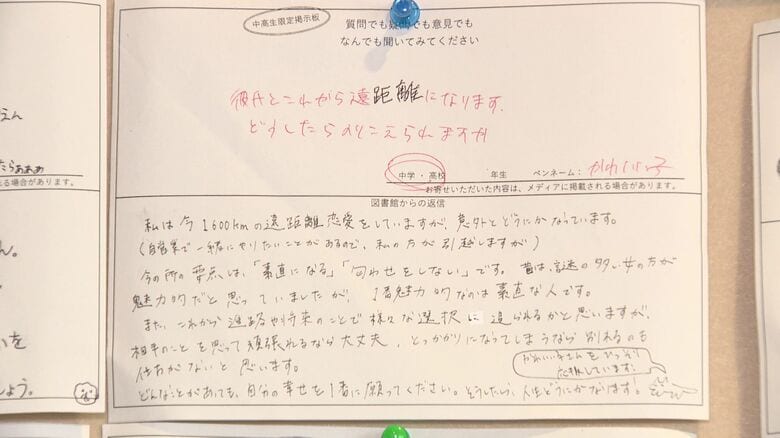 中高生限定掲示板
質問でも疑問でも意見でも
なんでも聞いてみてください
彼氏とこれから遠距離になります。
どうしたらのりこえられますか
中学・高校 年生 ペンネーム：かわいい子
お寄せいただいた内容は、メディアに掲載される場合があります。
図書館からの返信
私は今1600kmの遠距離恋愛をしていますが、意外とどうにかなっています。
(自営業で一緒にやりたいことがあるので、私の方が引越しますが)
今の所の要点は、「素直になる」「匂わせをしない」です。昔は、謎の多い女の方が
魅力的だと思っていましたが、1番魅力的なのは素直な人です。
また、これから進路や将来のことで様々な選択に迫られるかと思いますが、
相手のことを思って頑張れるなら大丈夫、とっかかりになってしまうなら別れるのも
仕方がないと思います。
かわいい子さんをひっそり
応援しています!
どんなことがあっても、自分の幸せを1番に願ってください。そうしたら、人生どうにかなります!
えん
たらぁぁぁ
れる場合があります。
ん。
いを
しょう。